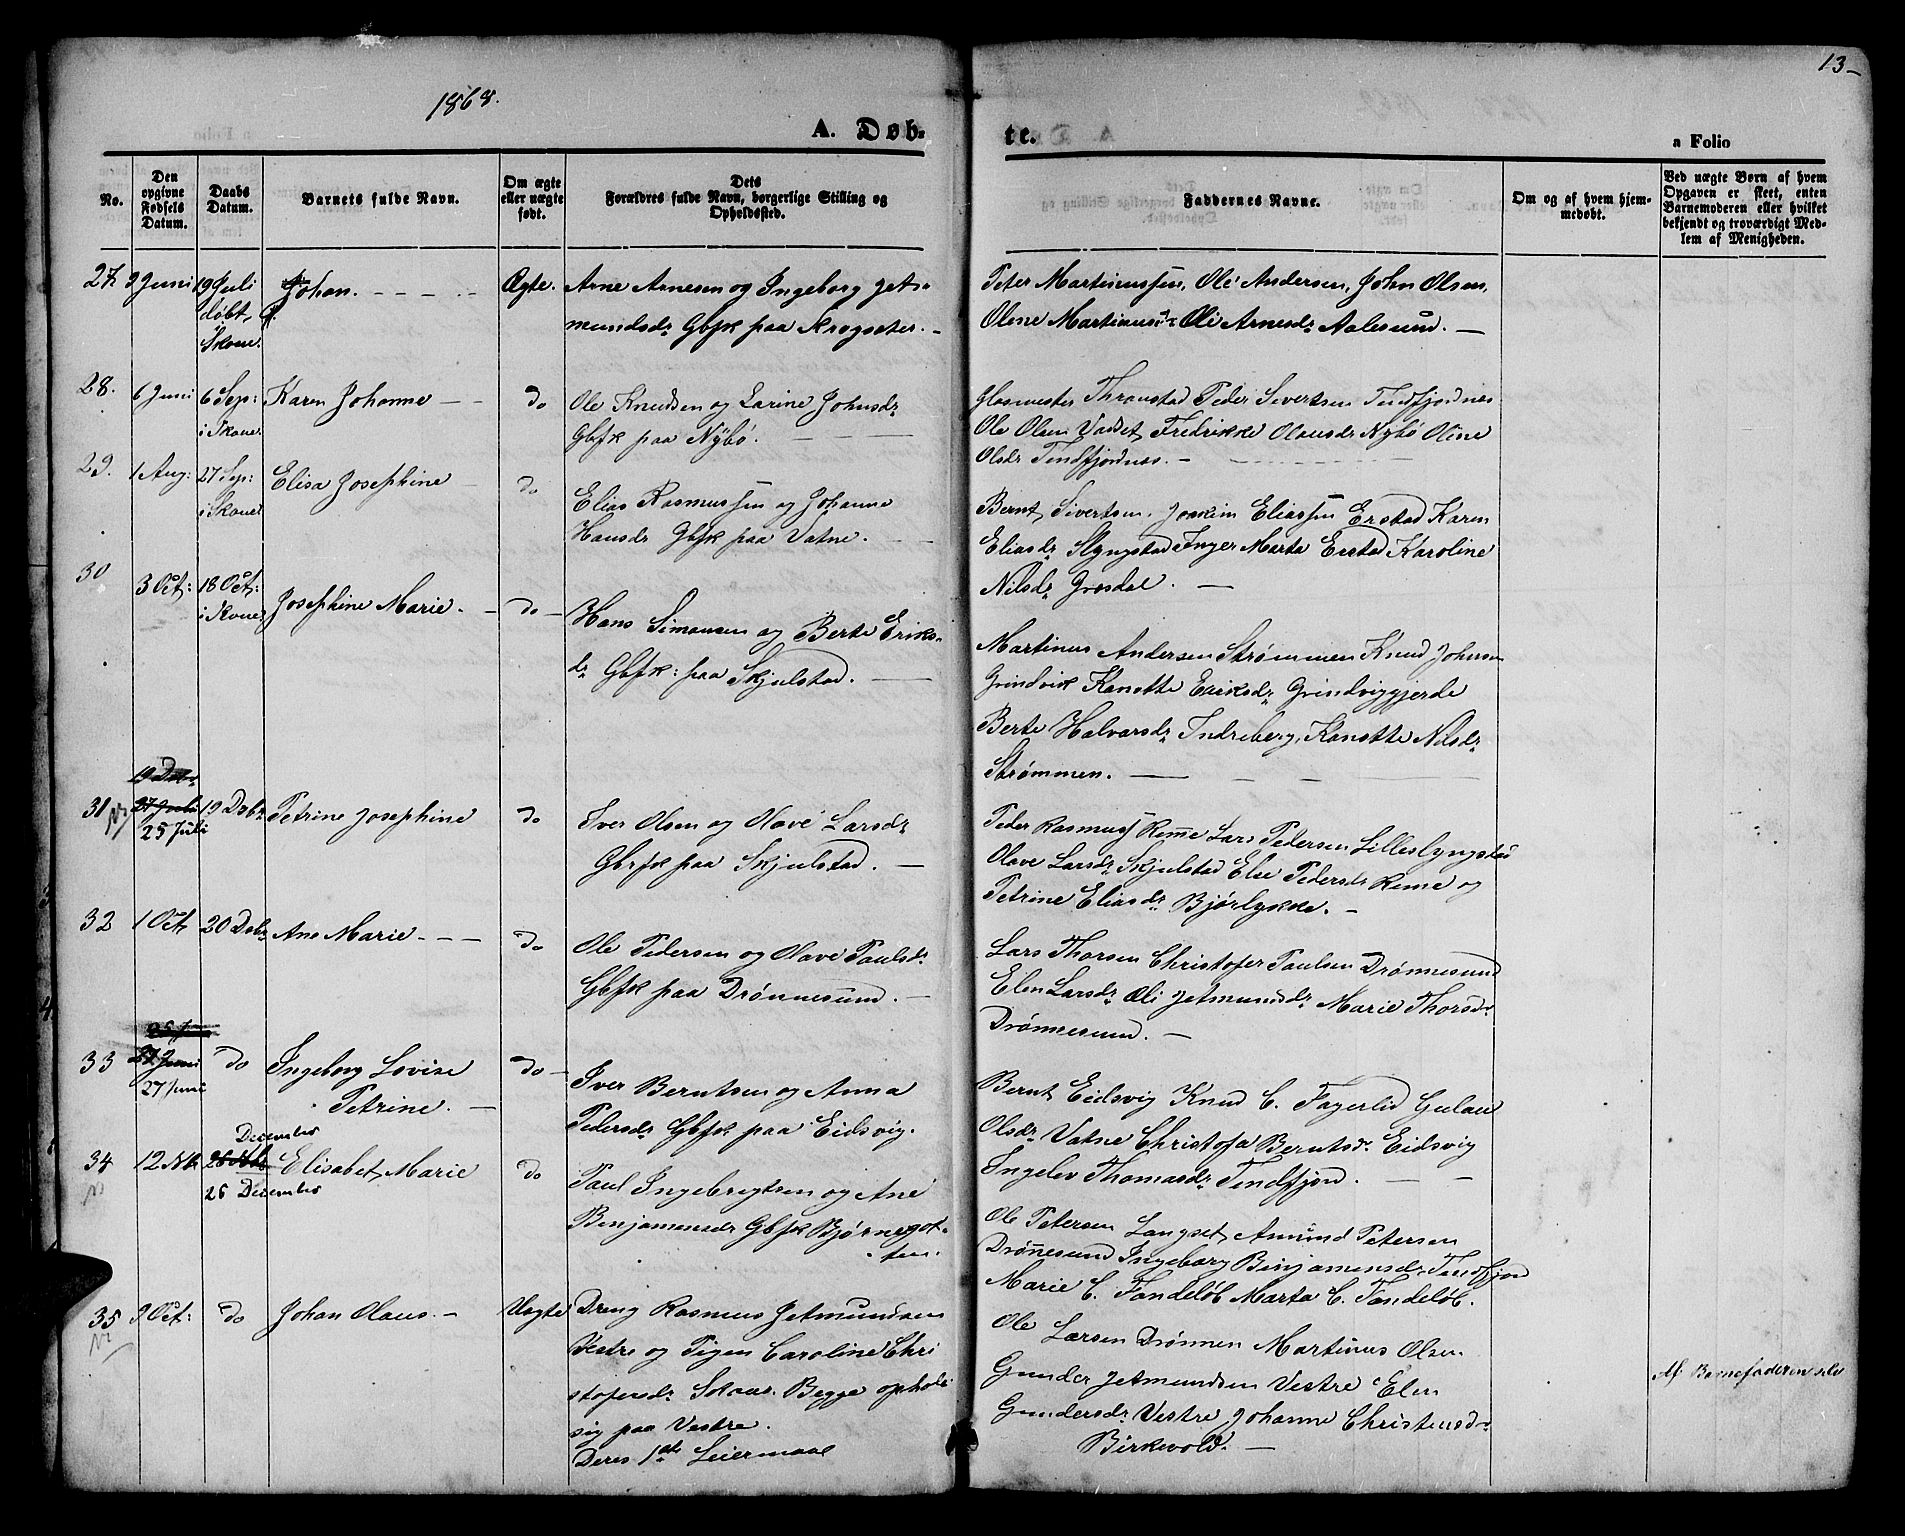 1868.
13-
A. Døb-
te.
a Folio
No.
Den opgivne Fødsels Datum.
Daabs Datum.
Barnets fulde Navn.
Om ægte eller uægte født.
Dets Forældres fulde Navn, borgerlige Stilling og Opholdssted.
Faddernes Navne.
Om og af hvem hjemmedøbt.
Ved uægte Børn af hvem Opgaven er skeet, enten Barnemoderen eller hvilket bekjendt og troværdigt Medlem af Menigheden.
27 9 Juni 19 Juli Johan. Ægte. Arne Arnesen og Ingeborg Jet-
døbt mundsdr Gbfk paa Krogsæter.
i Skoue.
Peter Martinussen, Ole Andersen, John Olsen,
Olene Martinusdr Oli Arnesdr Aalesund.
28. 6 Juni 6 Sep: Karen Johanne do Ole Knudsen og Larine Johnsdr
i Skoue. Gbfk paa Nybø.
Glasmester Thronstad Peder Sivertsen Tendfjordnes
Ole Olsen Vasset Fredrikke Olausdr Nybø Oline
Olsdr Tendfjordnes.
29. 1 Aug: 27 Sep: Elisa Josephine do Elias Rasmussen og Johanne
i Skoue Hansdr Gbfk paa Vatne.
Bernt Sivertsen, Joakim Eliassen Erstad Karen
Eliasdr Slyngstad Inger Marta Erstad Karoline
Nilsdr Grosdal.
30 3 Oct: 18 Oct: Josephine Marie. do Hans Simonsen og Berte Eriks-
i Skoue dr Gbfk: paa Skjulstad.
Martinus Andersen Strømmen Knud Johnsen
Grindvik Kanutte Eriksdr Grindviggjerde
Berte Halvarsdr Indreberg, Kanutte Nilsdr
Strømmen.
19 Dbr
31 27 Juli 19 Dsbr Petrine Josephine do Iver Olsen og Olave Larsdr
25 Juli Gbrfk paa Skjulstad.
Peder Rasmuss Reme Lars Pedersen Lilleslyngstad
Olave Larsdr Skjulstad Elie Pedersdr Reme og
Petrine Eliasdr Bjørlykke.
32 1 Oct 20 Dsbr Ane Marie do Ole Pedersen og Olave Paulsdr
Gbfk paa Drønnesund.
Lars Thorsen Christofer Paulsen Drønnesund
Elen Larsdr Oli Jetmundsdr Marie Thorsdr
Drønnesund.
33 27 Juni do Ingeborg Lovise do Iver Berntsen og Anna
27 Juni Petrine. Pedersdr Gbfk paa Eidsvig.
Bernt Eidsvig Knud C. Fagerlid Gulau
Olsdr Vatne Christofa Berntsdr Eidsvig
Ingelev Thomasdr Tendfjord.
December
34 12 Nb 26 Nb Elisabet Marie do Paul Ingebregtsen og Ane
26 December Benjamensdr Gbfk Bjørnegot-
ten.
Ole Petersen Langset Amund Petersen
Drønesund Ingeborg Benjamensdr Tendfjord
Marie C. Fandeløb Marta C. Fandeløb.
35 9 Oct: do Johan Olaus. Uægte Dreng Rasmus Jetmundsen
Vestre og Pigen Caroline Chri
stofersdr Solaas. Begge ophold
sig paa Vestre.
Deres 1ste Leiermaal
Ole Larsen Drønnen Martinus Olsen
Gunder Jetmundsen Vestre Elen
Gundersdr Vestre Johanne Christensdr
Birkevold.
Af Barnefaderen selv